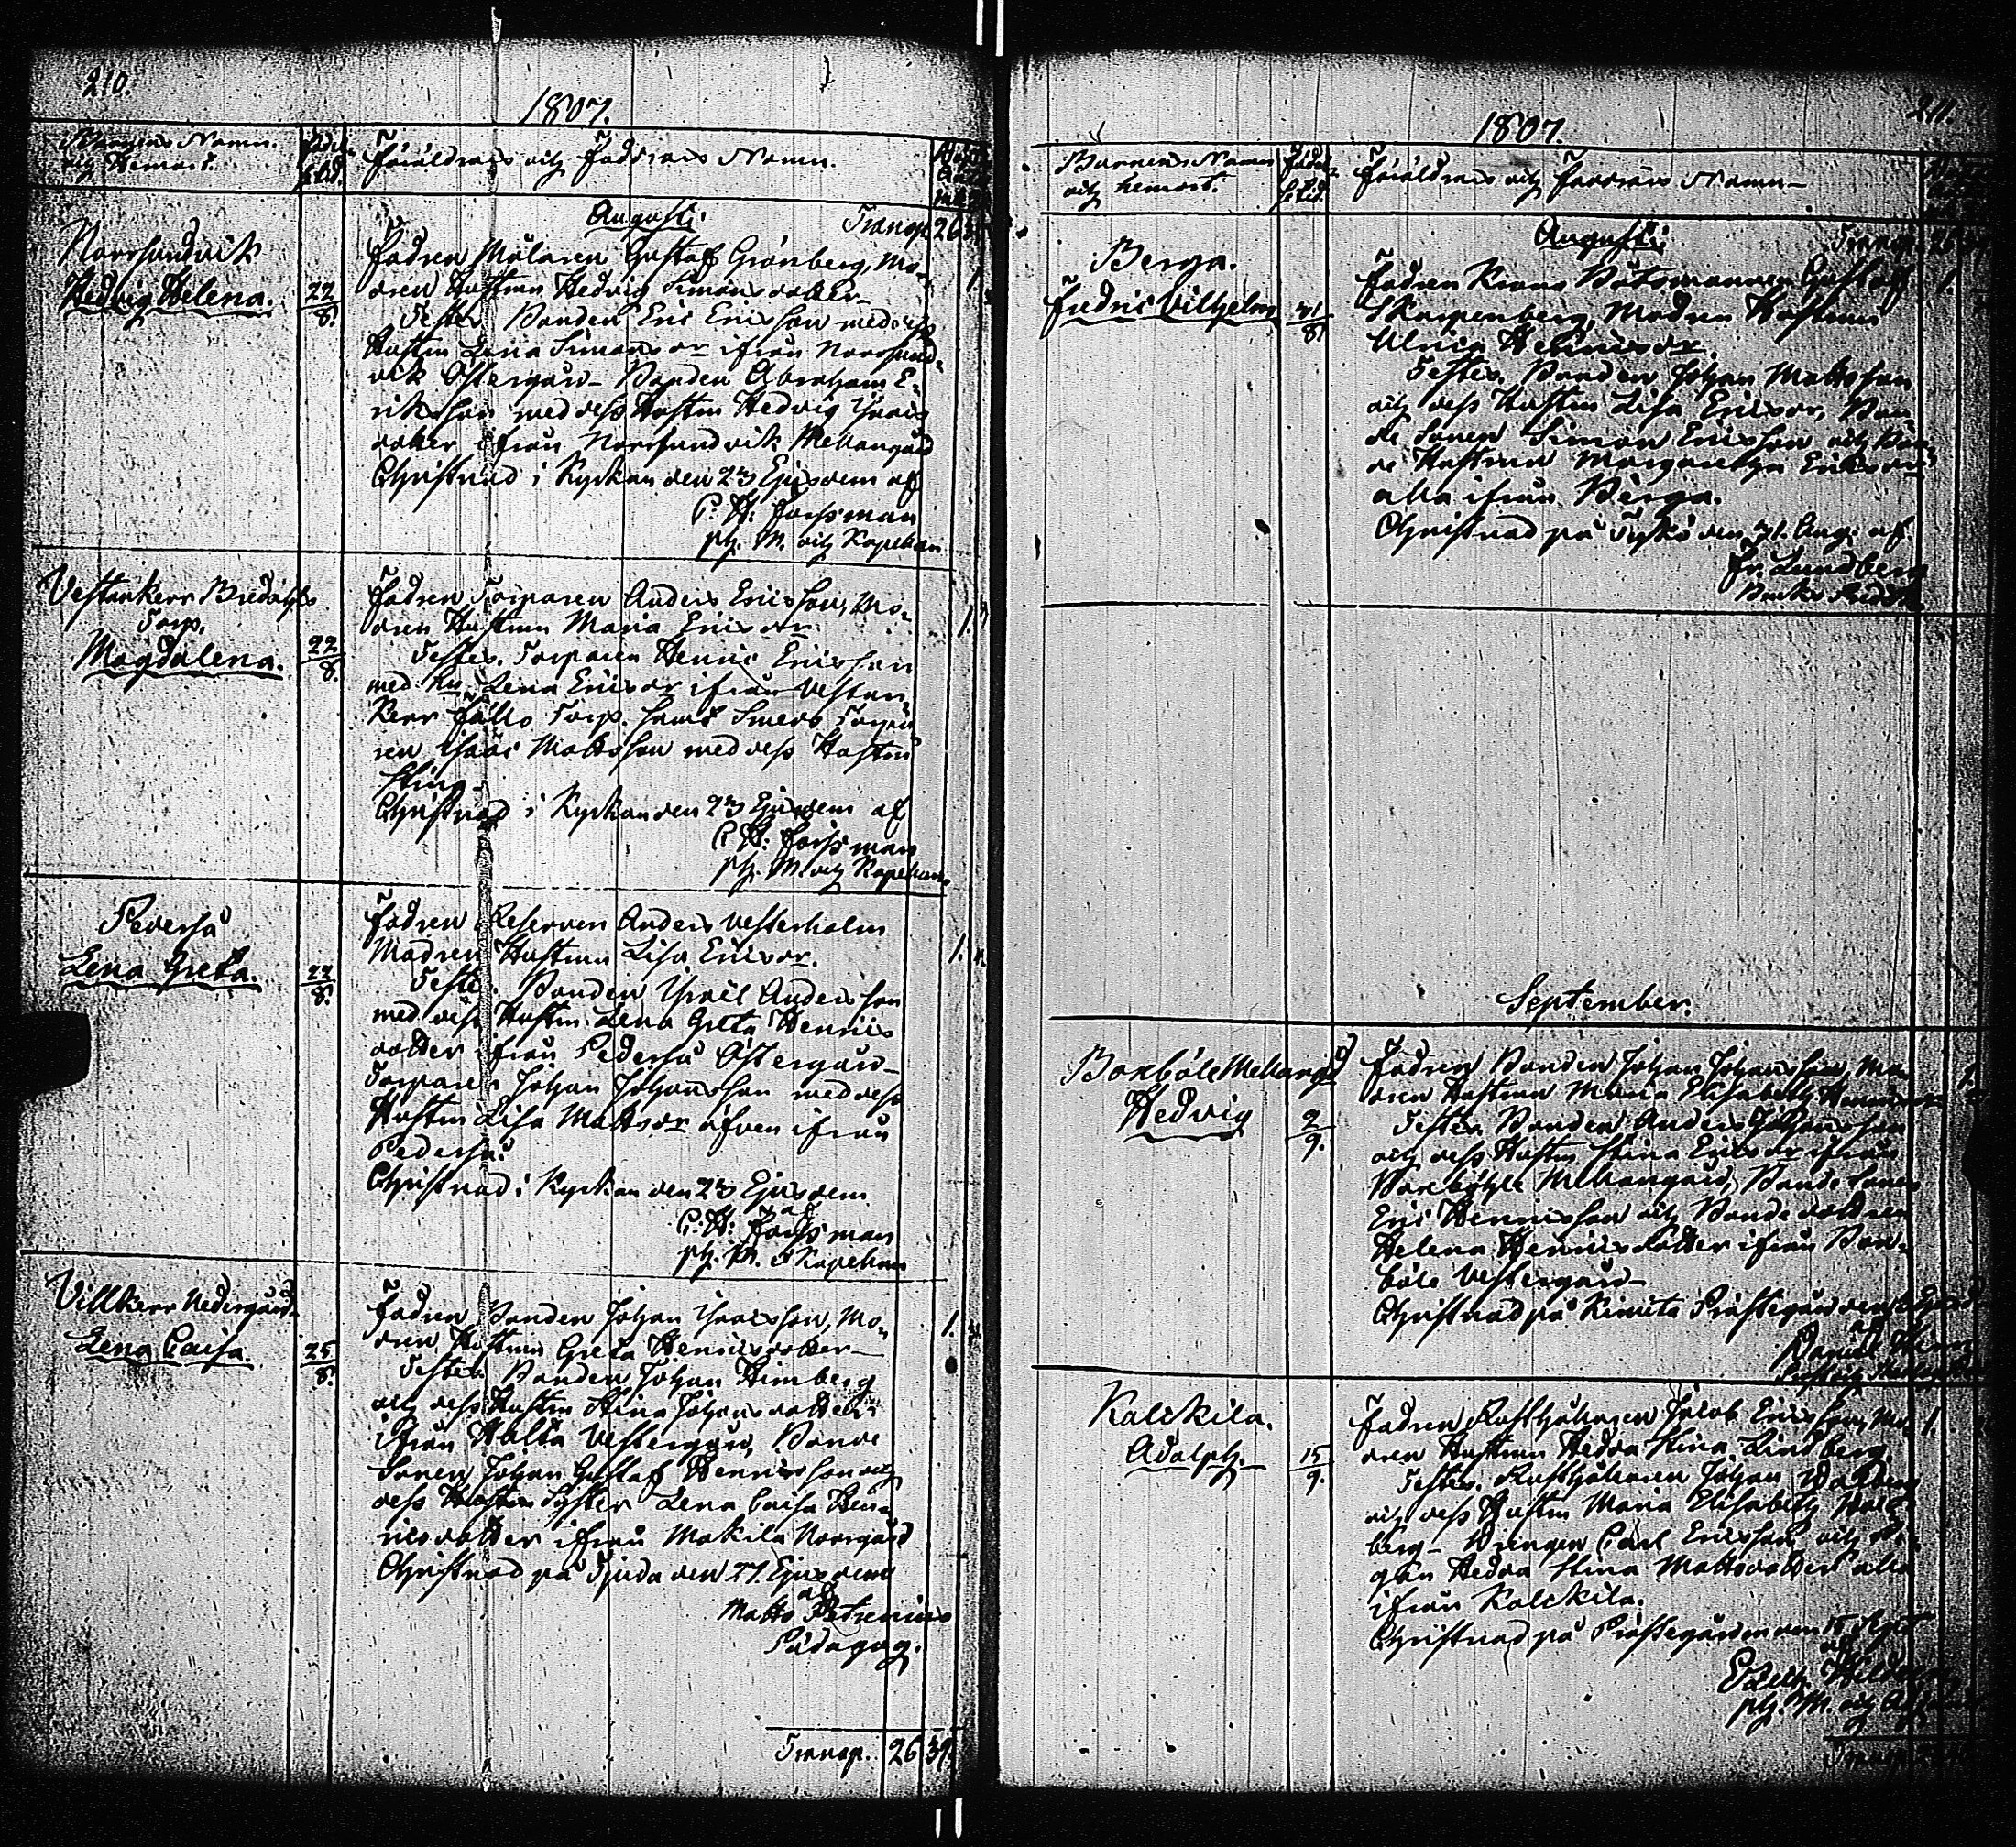 210.
1807.
Barnens Namn
och Hemort.
Föräldrars och Faddrars Namn.
Augusti.
Transp. 26
Norrsundvik
Hedvig Helena.
22/8.
Fadren Målaren Gustaf Grönberg, Mo-
dren Hustrun Hedvig Simonsdotter
Testes Bonden Eric Ericsson med dess
Hustru Lena Simonsdr ifrån Norrsund-
vik Östergård - Bonden Abraham E-
riksson med dess Hustru Hedvig Isaacs
dotter ifrån Norrsundvik Mellangård
Christnad i Kyrkan den 23 Ejusdem af
C. H. Forssman
ph. M. och Kapellan
Vestankerr Bredahls
Torp.
Magdalena.
22/8.
Fadren Torparen Anders Ericsson, Mo-
dren Hustrun Maria Ericsdr
Testes. Torparen Henric Ericsson
med Hu. Lena Ericsdr ifrån Vestan-
kerr Torp. samt Torpa-
ren Isaac Mattsson med dess Hustru
Stina
Christnad i Kyrkan den 23 Ejusdem af
C. H. Forssman
ph. M. och Kapellan
Pederså
Lena Greta.
22/8.
Fadren Reserven Anders Vesterholm
Modren Hustrun Lisa Ericsdr.
Testes. Bonden Israel Andersson
med dess Hustru Lena Greta Henrics
dotter ifrån Pederså Östergård
Torparen Johan Johansson med dess
Hustru Lisa Mattsdr äfven ifrån
Pederså.
Christnad i Kyrkan den 23 Ejusdem
af
C. H. Forssman
ph. M. & Kapellan
Villkerr Nedergård
Lena Caisa
25/8.
Fadren Bonden Johan Isaacsson, Mo-
dren Hustrun Greta Henricsdotter
Testes. Bonden Johan Himberg
och dess Hustru Stina Johansdotter
ifrån Vestergård, Bonde
Sonen Johan Gustaf Henricsson och
dess Syster Lena Caisa Hen-
ricsdotter ifrån Makila Norrgård
Christnad på Tjuda den 27. Ejusdem
af
Matts Petrenius
Pädagog.
Transp. 26 39.
211.
1807.
Barnens Namn
och hemort.
Föräldrars och Faddrars Namn
Augusti
Transp. 26 39
Berga.
Fredric Vilhelm
31/8
Fadren Krono Båtsmannen Gustaf
Skarpenberg, Modren Hustrun
Ulrica Henricsdr.
Testes. Bonden Johan Mattsson
och dess Hustru Lisa Ericsdr, Bon-
de Sonen Simon Ericsson och Bon-
de Hustrun Margaretha Ericsdr
alla ifrån Berga.
Christnad på Tykö den 31. Aug. af
Fr. Lundberg
Bruks Pred.
September.
Boxböle Mellangd
Hedvig
2/9.
Fadren Bonden Johan Johansson, Mo-
dren Hustrun Maria Elisabeth
Testes. Bonden Anders Johansson
och dess Hustru Stina Ericsdr ifrån
Mellangård, Bonde Sonen
Eric Henricsson och Bonde dottren
Helena Henricsdotter ifrån Box-
böle Vestergård
Christnad på Kimito Prästegård den
af
Daniel
Kalckila.
Adolph.
15/9.
Fadren Rusthållaren Jacob Ericsson, Mo-
dren Hustrun Hedda Stina Lindberg
Testes. Rusthållaren Johan
och dess Hustru Maria Elisabeth
berg - Drengen Carl Ericsson och Pi-
gan Hedda Stina Mattsdotter alla
ifrån Kalckila.
Christnad på Prästegården den 15 Sept.
af
ph. M. och
Transp.